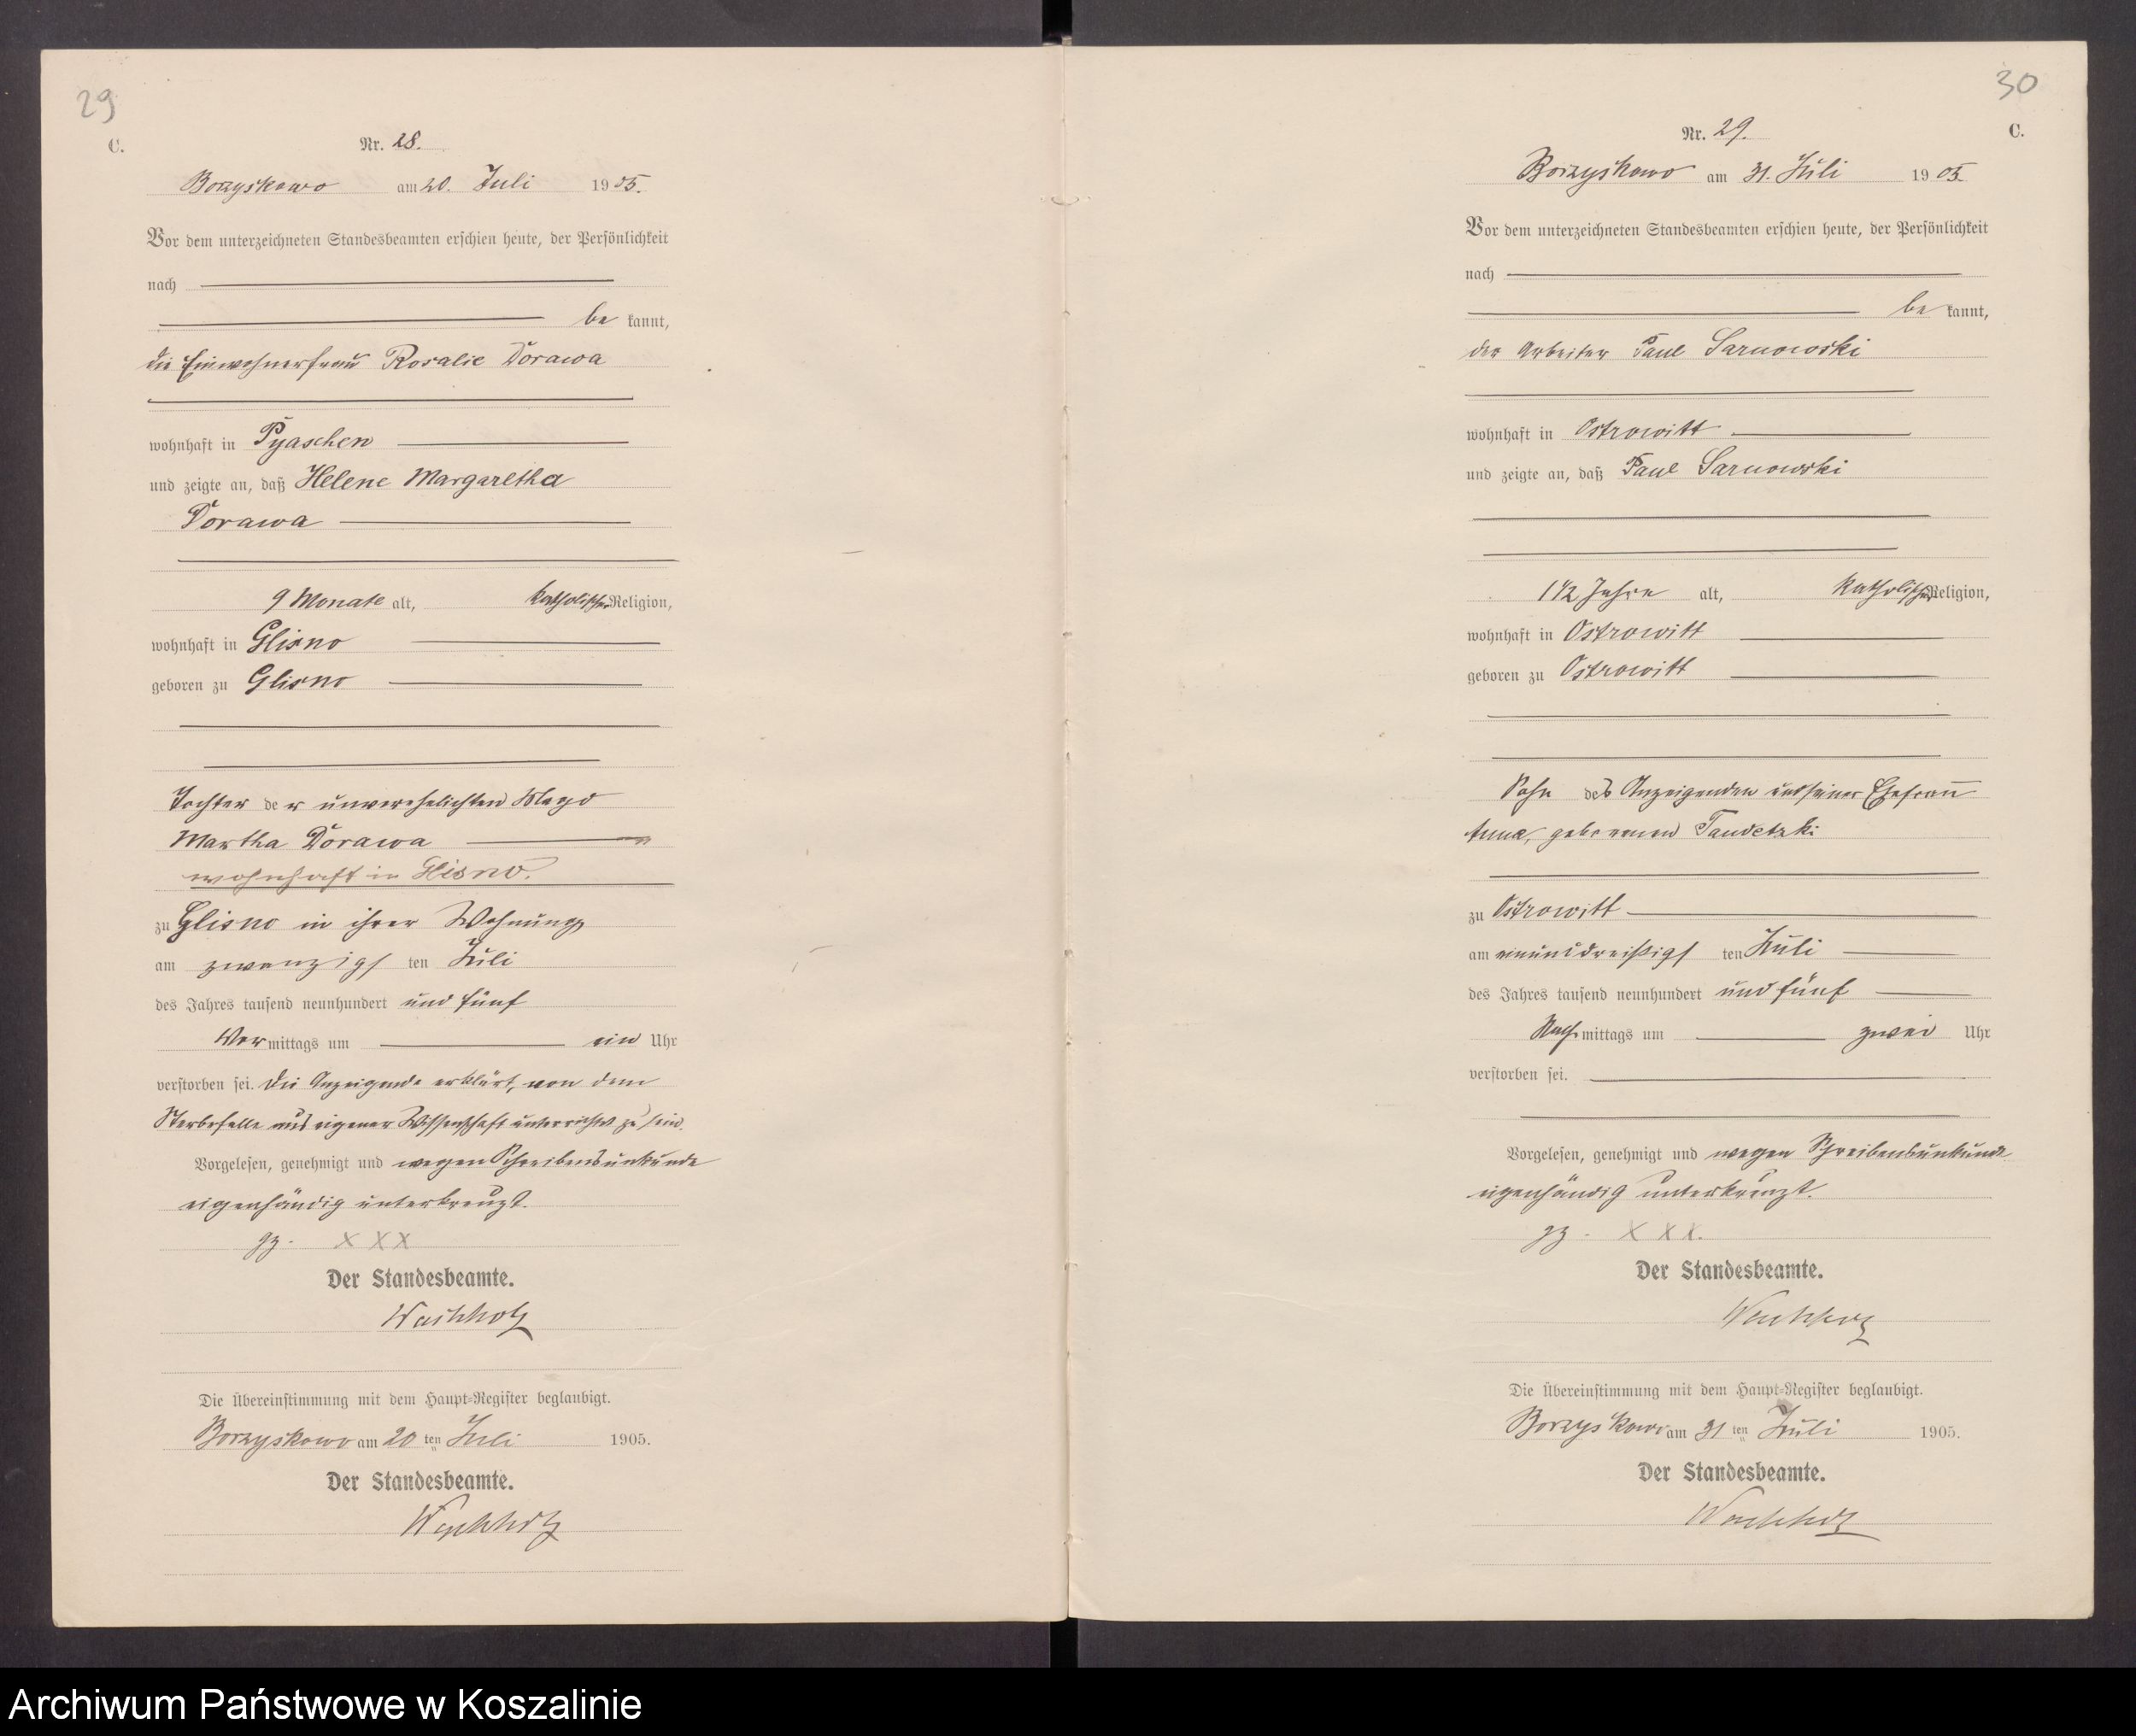 29
C.
Nr. 28.
Borzyskowo am 20. Juli 1905.
Vor dem unterzeichneten Standesbeamten erschien heute, der Persönlichkeit
nach
be kannt,
die Einwohnerfrau Rosalie Dorawa
wohnhaft in Pyaschen
und zeigte an, daß Helene Margaretha
Dorawa
9 Monate alt, katholischer Religion,
wohnhaft in Glisno
geboren zu Glisno
Tochter der unverehelichten Magd
Martha Dorawa
wohnhaft in Glisno.
zu Glisno in ihrer Wohnung
am zwanzigsten Juli
des Jahres tausend neunhundert und fünf
Vormittags um ein Uhr
verstorben sei. Die Anzeigende erklärt, von dem
Sterbefalle aus eigener Wissenschaft unterrichtet zu sein.
Vorgelesen, genehmigt und wegen Schreibensunkunde
eigenhändig unterkreuzt.
gz. XXX
Der Standesbeamte.
Wachholz
Die Übereinstimmung mit dem Haupt-Register beglaubigt.
Borzyskowo am 20 ten Juli 1905.
Der Standesbeamte.
Wachholz
30
C.
Nr. 29.
Borzyskowo am 31. Juli 1905
Vor dem unterzeichneten Standesbeamten erschien heute, der Persönlichkeit
nach
be kannt,
der Arbeiter Paul Sarnowski
wohnhaft in Ostrowitt
und zeigte an, daß Paul Sarnowski
1 1/2 Jahre alt, katholischer Religion,
wohnhaft in Ostrowitt
geboren zu Ostrowitt
Sohn des Anzeigenden und seiner Ehefrau
Anna, geborenen Tandetzki
zu Ostrowitt
am einunddreißigsten Juli
des Jahres tausend neunhundert und fünf
Nachmittags um zwei Uhr
verstorben sei.
Vorgelesen, genehmigt und wegen Schreibensunkunde
eigenhändig unterkreuzt.
gz. XXX.
Der Standesbeamte.
Wachholz
Die Übereinstimmung mit dem Haupt-Register beglaubigt.
Borzyskowo am 31 ten Juli 1905.
Der Standesbeamte.
Wachholz
Archiwum Państwowe w Koszalinie